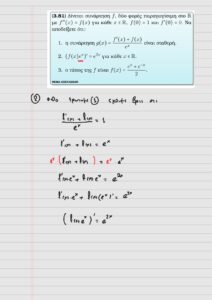 (3.81) Δίνεται συνάρτηση f, δύο φορές παραγωγίσιμη στο ℝ
με f''(x) = f(x) για κάθε x ∈ ℝ, f(0) = 1 και f'(0) = 0. Να
αποδείξετε ότι:
1. η συνάρτηση g(x) = (f'(x) + f(x))/eˣ είναι σταθερή.
2. (f(x)eˣ)' = e²ˣ για κάθε x ∈ ℝ.
3. ο τύπος της f είναι f(x) = (eˣ + e⁻ˣ)/2.
(2) Από ερώτημα (1) έχουμε ότι
(f'(x) + f(x))/eˣ = 1
f'(x) + f(x) = eˣ
eˣ (f'(x) + f(x)) = eˣ · eˣ
f'(x)eˣ + f(x)eˣ = e²ˣ
f'(x)eˣ + f(x)(eˣ)' = e²ˣ
(f(x)eˣ)' = e²ˣ